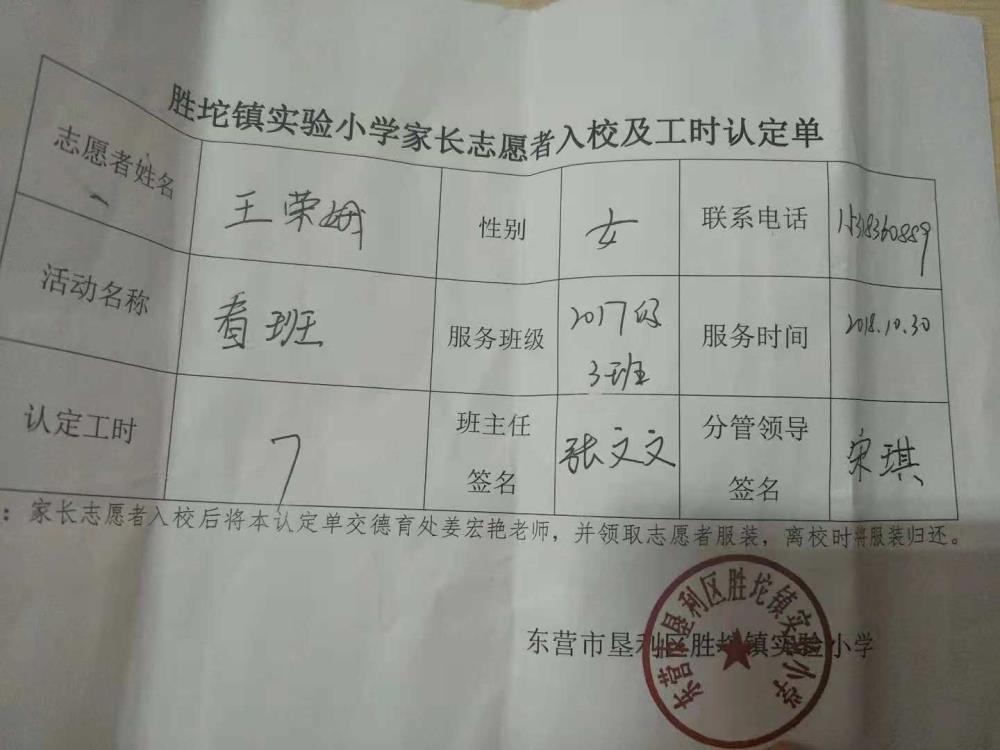 胜坨镇实验小学家长志愿者入校及工时认定单
志愿者姓名 王荣娥 性别 女 联系电话
活动名称 看班 服务班级 2017级3班 服务时间 2018.10.30
认定工时 7 班主任签名 张文文 分管领导签名 宋琪
：家长志愿者入校后将本认定单交德育处姜宏艳老师，并领取志愿者服装，离校时将服装归还。
东营市垦利区胜坨镇实验小学
东营市垦利区胜坨镇实验小学